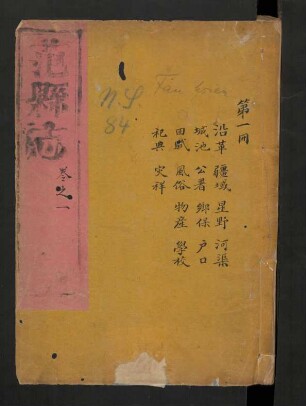 范縣志
卷之一
NS
84
Fan
第一冊
沿革 疆域 星野 河渠
城池 公署 鄉保 戶口
田賦 風俗 物産 學校
祀典 災祥